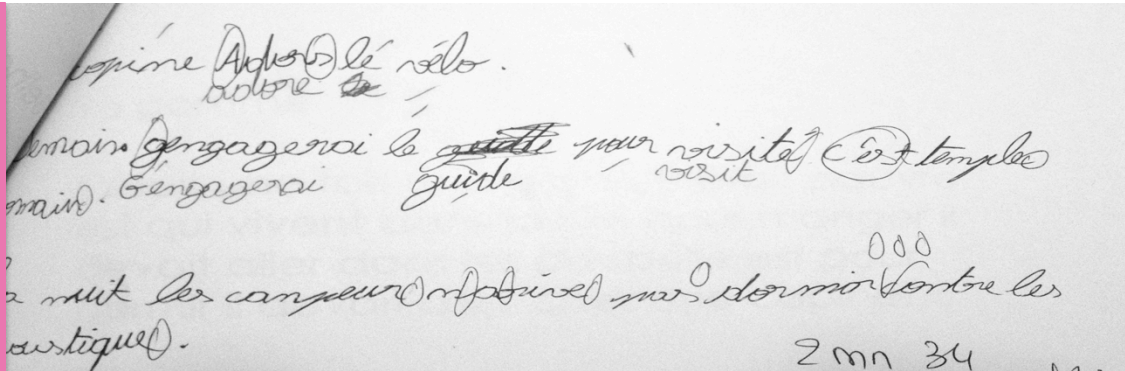 copine Adors lé vélo.
adore
emain. gengagerai le pour visité c'est temple
main. Gengagerai guide visit
a nuit les canpeur n'arive pas dormir contre les
oustique.
2 mn 34